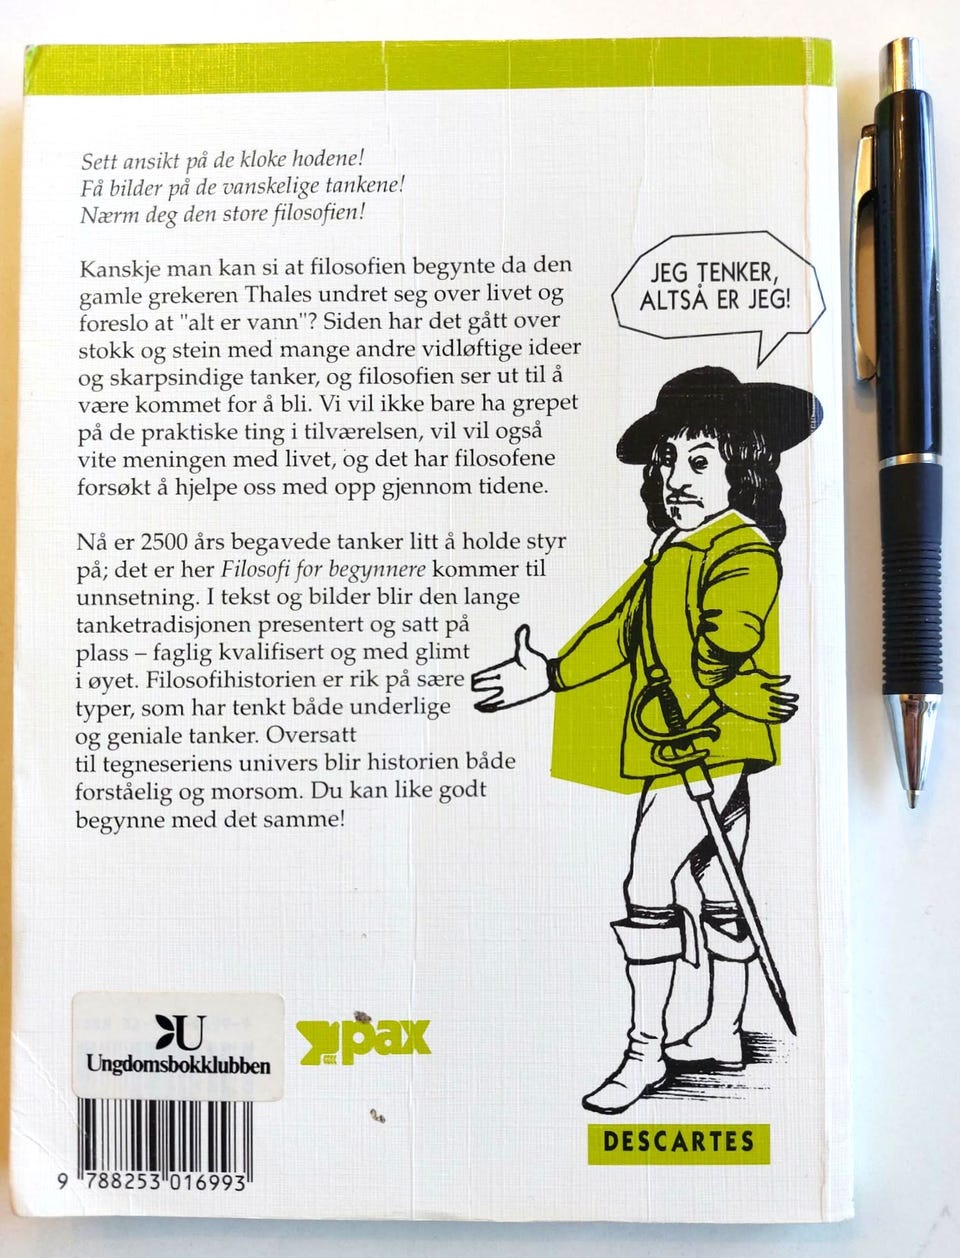 Sett ansikt på de kloke hodene!
Få bilder på de vanskelige tankene!
Nærm deg den store filosofien!
Kanskje man kan si at filosofien begynte da den
gamle grekeren Thales undret seg over livet og
foreslo at "alt er vann"? Siden har det gått over
stokk og stein med mange andre vidløftige ideer
og skarpsindige tanker, og filosofien ser ut til å
være kommet for å bli. Vi vil ikke bare ha grepet
på de praktiske ting i tilværelsen, vil vil også
vite meningen med livet, og det har filosofene
forsøkt å hjelpe oss med opp gjennom tidene.
Nå er 2500 års begavede tanker litt å holde styr
på; det er her Filosofi for begynnere kommer til
unnsetning. I tekst og bilder blir den lange
tanketradisjonen presentert og satt på
plass – faglig kvalifisert og med glimt
i øyet. Filosofihistorien er rik på sære
typer, som har tenkt både underlige
og geniale tanker. Oversatt
til tegneseriens univers blir historien både
forståelig og morsom. Du kan like godt
begynne med det samme!
JEG TENKER,
ALTSÅ ER JEG!
U
Ungdomsbokklubben
pax
9 788253 016993
DESCARTES